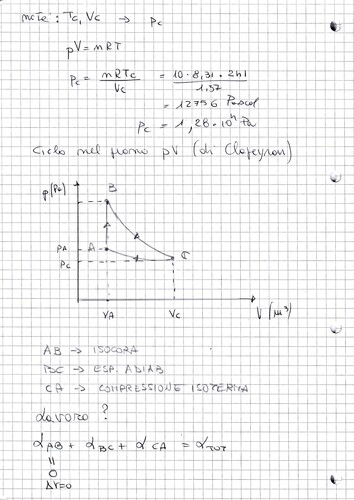 note: Tc, Vc → pc
pV = nRT
pc = nRTc / Vc = 10 · 8,31 · 241 / 1,57
= 12756 Pascal
pc = 1,28 · 10⁴ Pa
Ciclo nel piano pV (di Clapeyron)
p(Pa)
B
pA A
C
pc
VA Vc V (m³)
AB → ISOCORA
BC → ESP. ADIAB
CA → COMPRESSIONE ISOTERMA
Lavoro ?
LAB + LBC + LCA = LTOT
"
0
ΔV=0